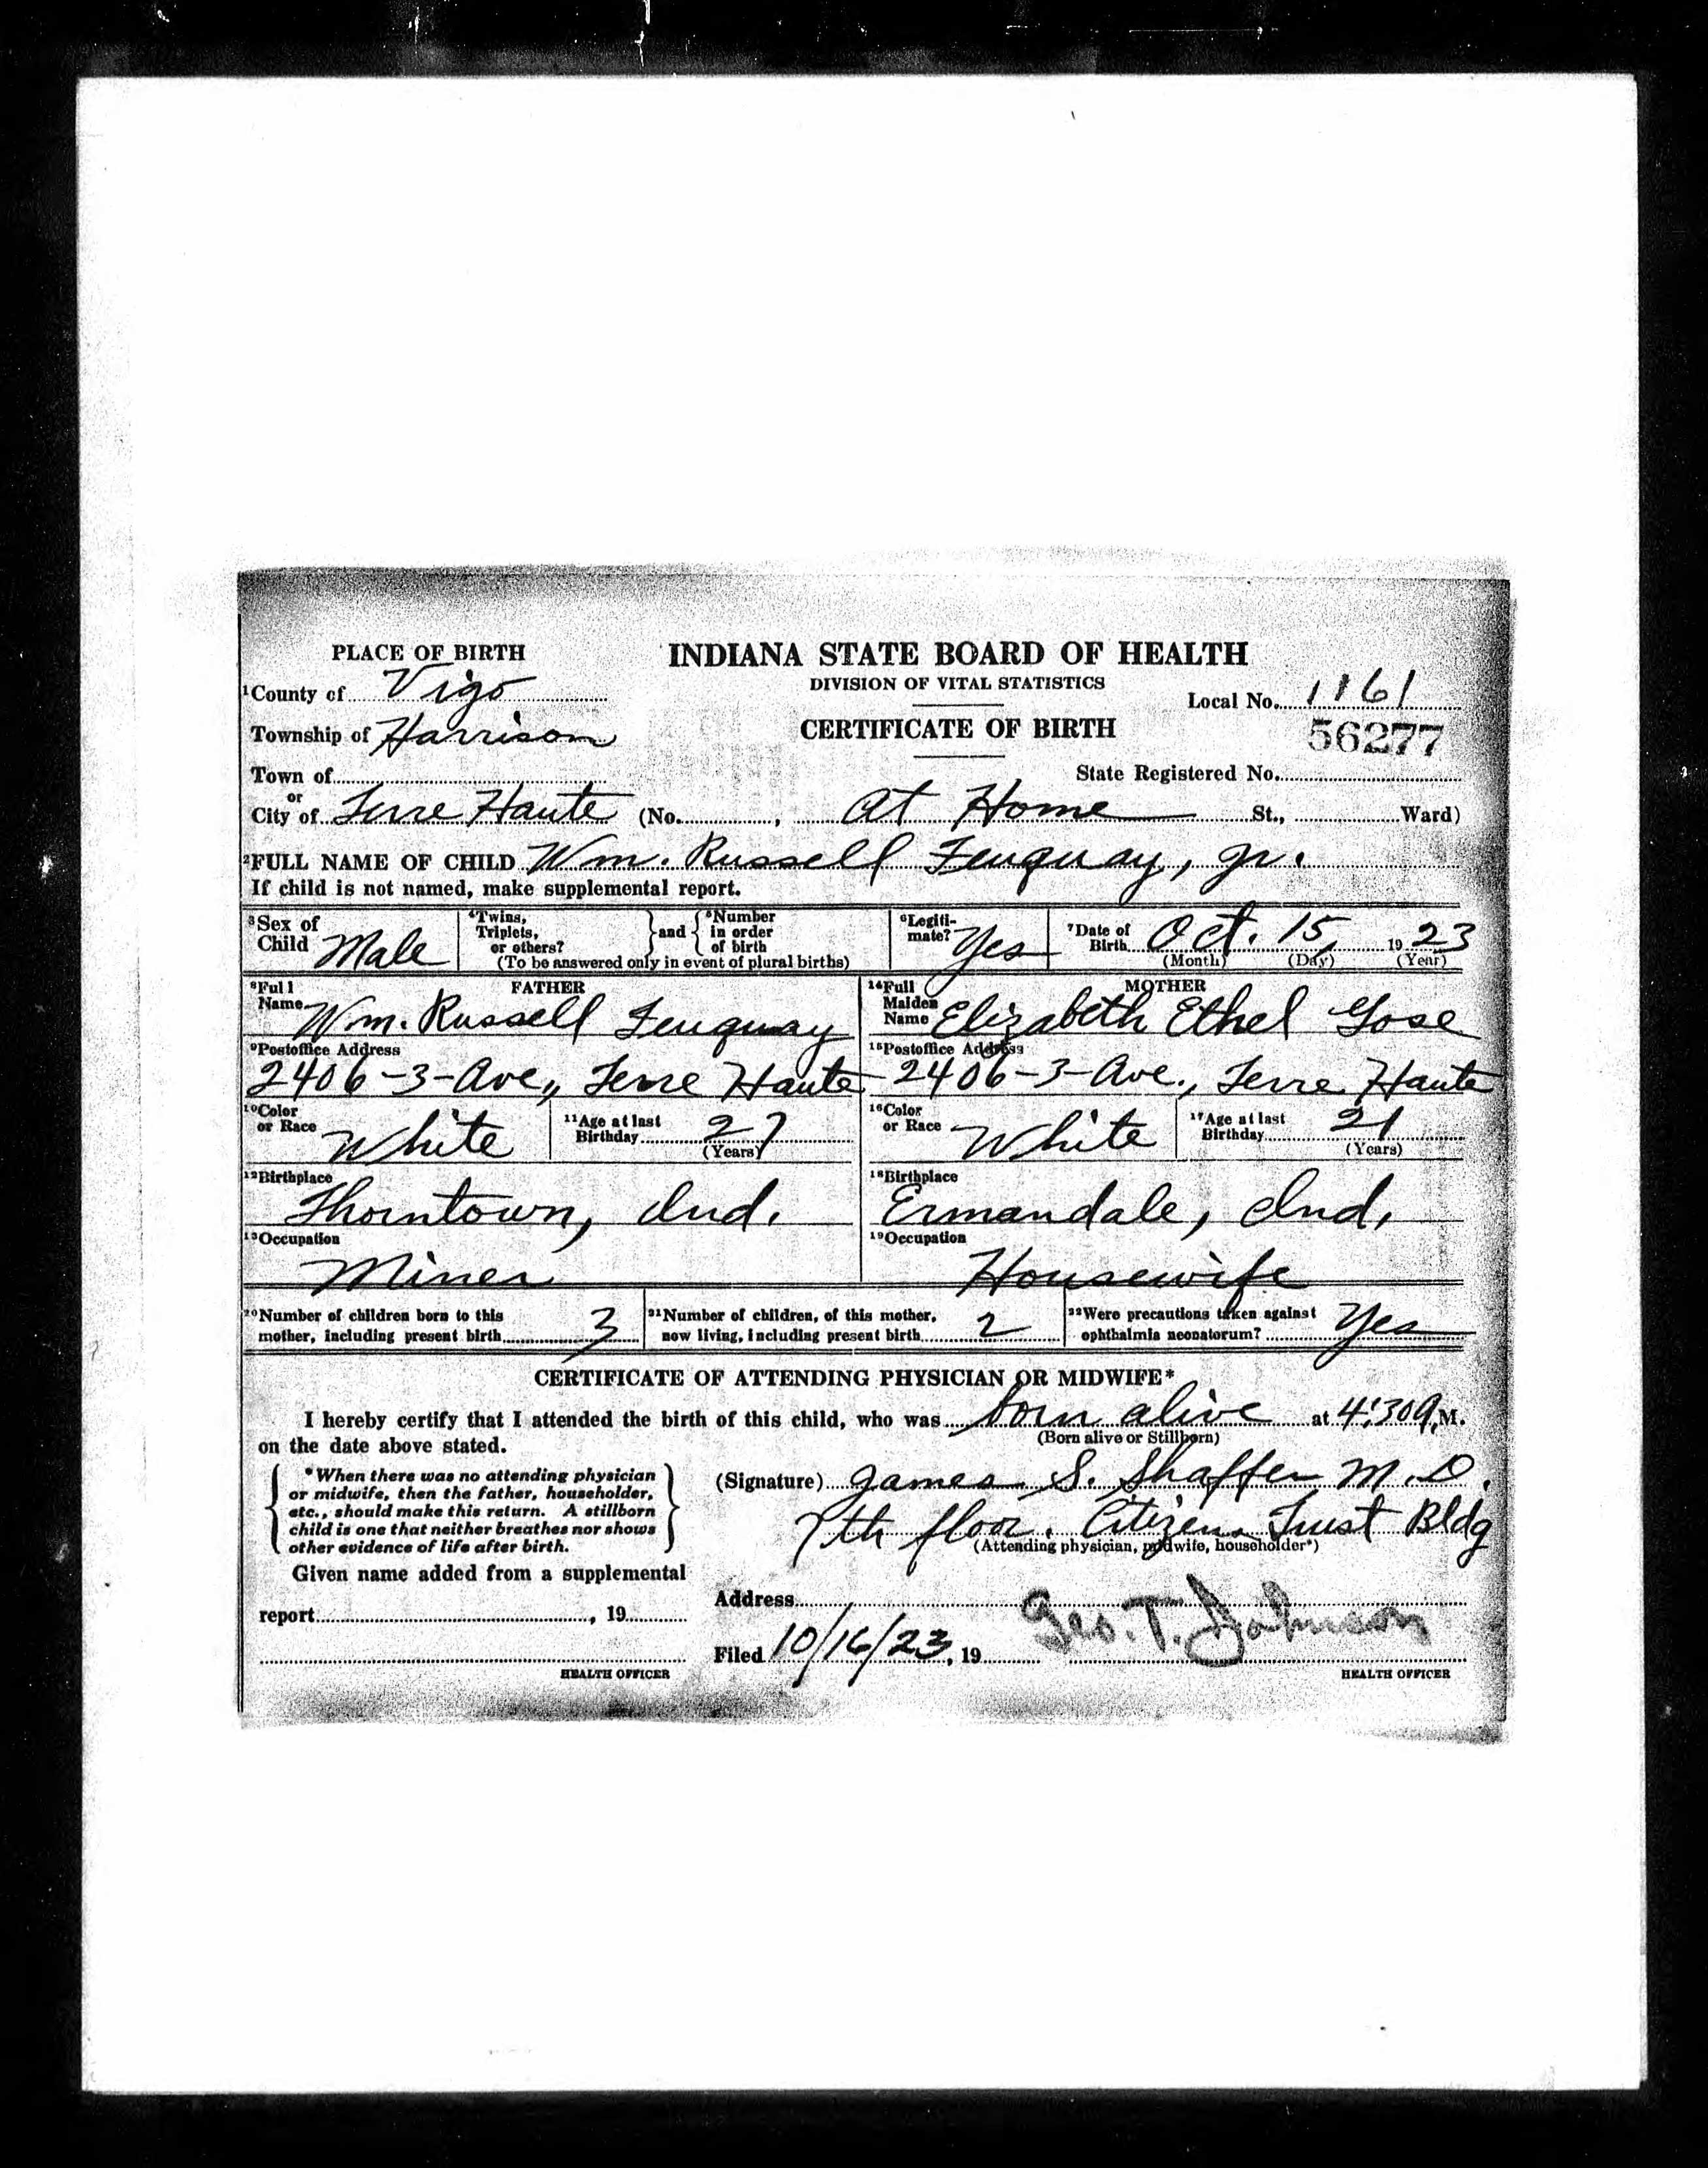 PLACE OF BIRTH
INDIANA STATE BOARD OF HEALTH
DIVISION OF VITAL STATISTICS
1County of Vigo
Local No. 1161
Township of Harrison
CERTIFICATE OF BIRTH
56277
Town of
State Registered No.
or
City of Terre Haute (No. , at Home St., Ward)
2FULL NAME OF CHILD Wm. Russell Feuquay, Jr.
If child is not named, make supplemental report.
3Sex of Child Male
4Twins, Triplets, or others? and 5Number in order of birth
(To be answered only in event of plural births)
6Legitimate? Yes
7Date of Birth Oct. 15, 1923
(Month) (Day) (Year)
FATHER
8Full Name Wm. Russell Feuquay
MOTHER
14Full Maiden Name Elizabeth Ethel Gose
9Postoffice Address
2406-3-Ave., Terre Haute
15Postoffice Address
2406-3-Ave., Terre Haute
10Color or Race White
11Age at last Birthday 27
(Years)
16Color or Race White
17Age at last Birthday 21
(Years)
12Birthplace
Thorntown, Ind.
18Birthplace
Ermandale, Ind.
13Occupation
Miner
19Occupation
Housewife
20Number of children born to this mother, including present birth 3
21Number of children, of this mother, now living, including present birth 2
22Were precautions taken against ophthalmia neonatorum? Yes
CERTIFICATE OF ATTENDING PHYSICIAN OR MIDWIFE*
I hereby certify that I attended the birth of this child, who was born alive at 4:30 a.M.
(Born alive or Stillborn)
on the date above stated.
*When there was no attending physician
or midwife, then the father, householder,
etc., should make this return. A stillborn
child is one that neither breathes nor shows
other evidence of life after birth.
(Signature) James S. Shaffer M.D.
7th floor. Citizens Trust Bldg
(Attending physician, midwife, householder*)
Given name added from a supplemental
report , 19
Address
Filed 10/16/23, 19
Geo. T. Johnson
HEALTH OFFICER
HEALTH OFFICER